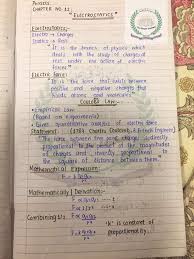 Physics
CHAPTER NO. 12
"ELECTROSTATICS"
Electrostatics:-
Electro → Charges
Statics → Rest
"It is the branch of physics which
deals with the study of charges at
rest under the action of electric
forces"
Electric force:-
"It is the force that exists between
positive and negative charges that
holds atoms and molecules"
Coulomb's Law:-
Empirical Law
(Based on experiments)
Gives quantitative of electric force
Statement: (1784, Charles Coulomb, French Engineer)
"The force between two point charges is directly
proportional to the product of the magnitude
of charges and inversely proportional to
the square of distance between them"
Mathematical Expression:
F = k q₁q₂/r²
Mathematically / Derivation:-
F ∝ q₁q₂
F ∝ 1/r²
Combining:
F ∝ q₁q₂/r²
"K" is constant of
proportionality.